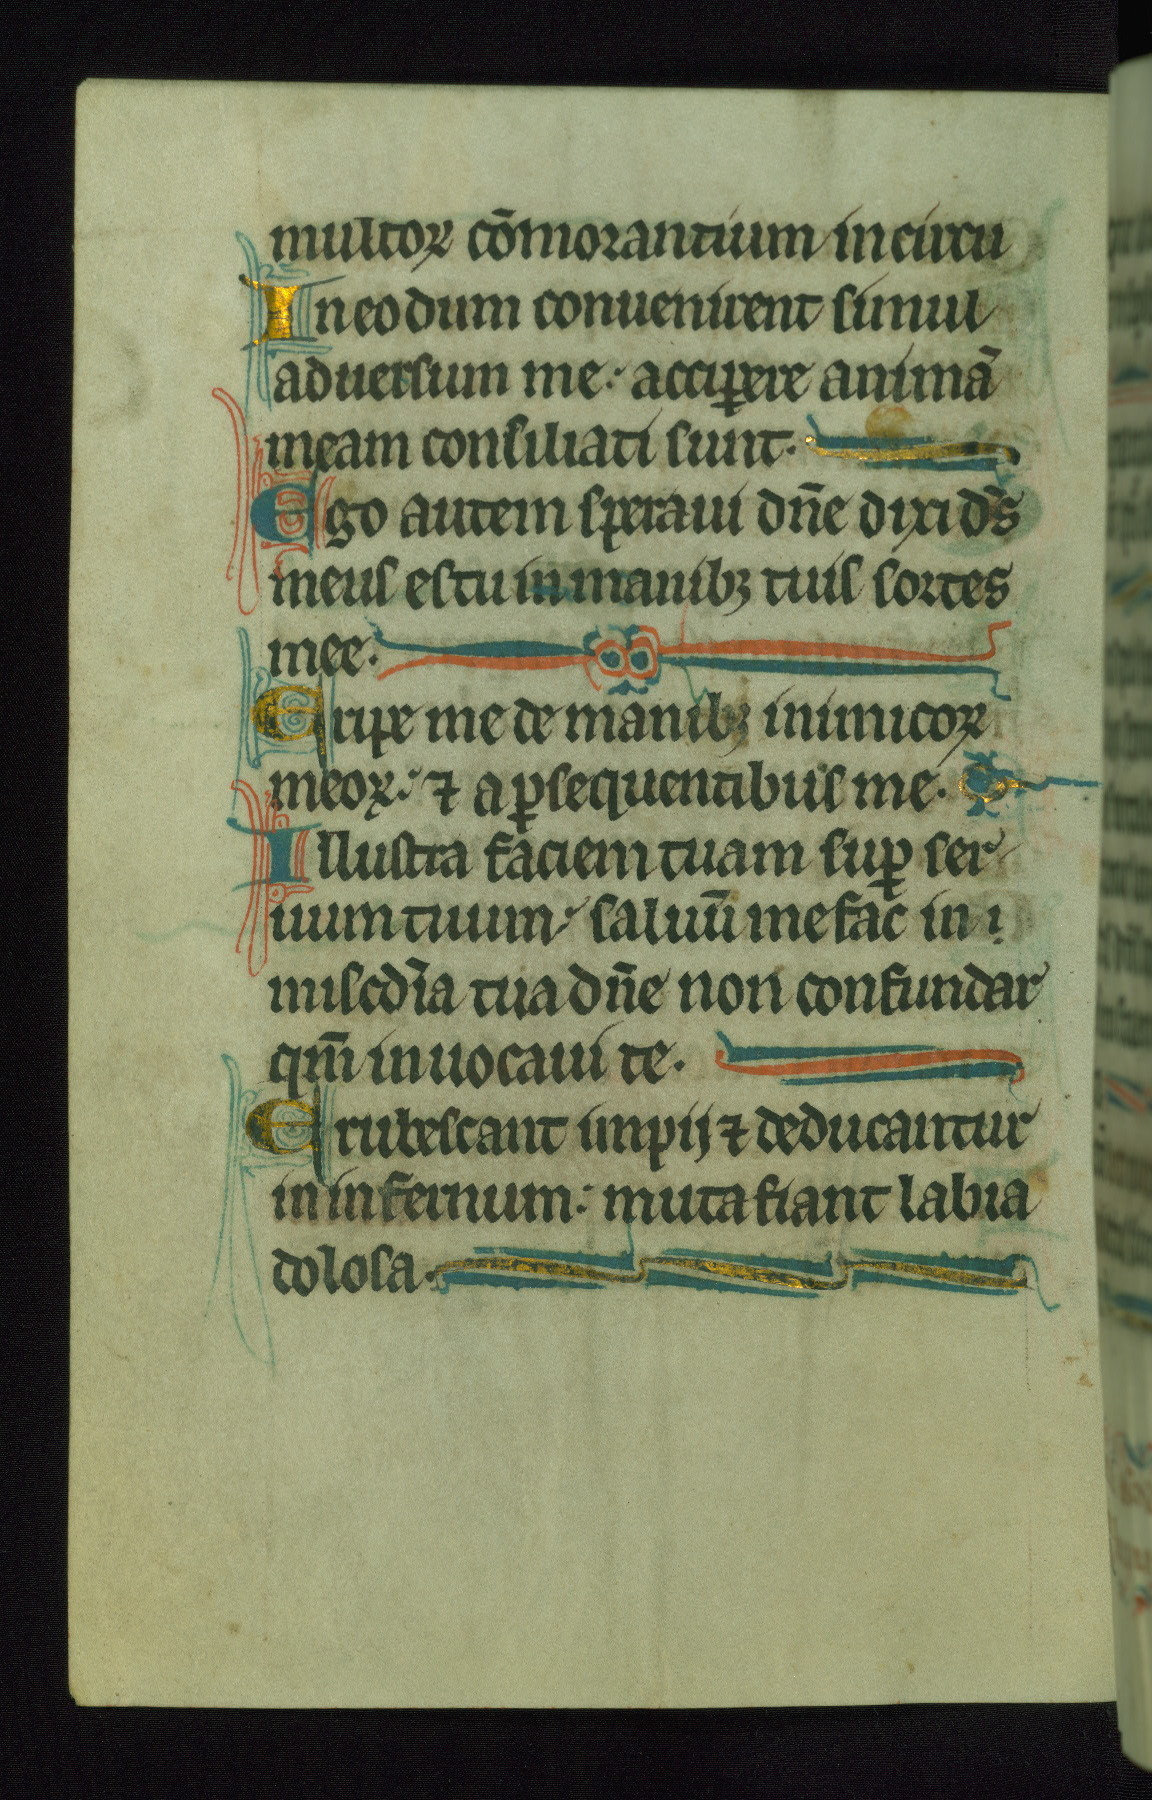 multoꝝ cōmorantium in circu
In eo dum conuenirent simul
aduersum me: accip̲ere animā
meam consiliati sunt.
Ego autem speraui dn̄e dixi ds̄
meus es tu in manibꝫ tuis sortes
mee.
Eripe me de manibꝫ inimicoꝝ
meoꝝ: ⁊ a ꝑsequentibus me.
Illustra faciem tuam suꝑ ser
uum tuum: saluū me fac in
misc̄dia tua dn̄e non confundar
qm̄ inuocaui te.
Erubescant impij ⁊ deducantur
in infernum: muta fiant labia
dolosa.